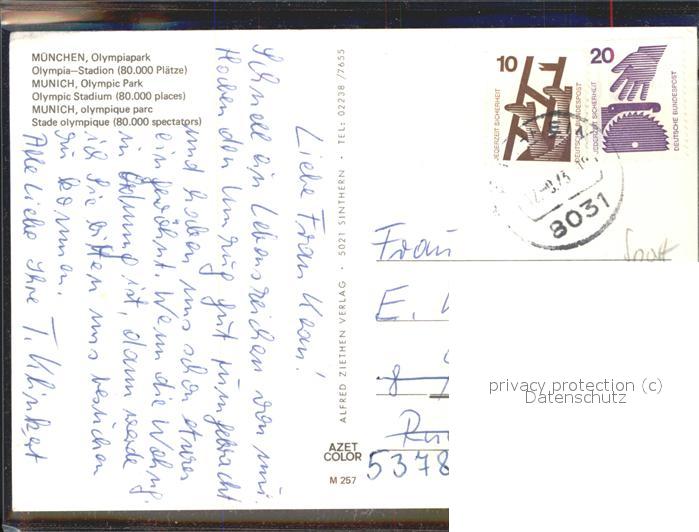 MÜNCHEN, Olympiapark
Olympia-Stadion (80.000 Plätze)
MUNICH, Olympic Park
Olympic Stadium (80.000 places)
MUNICH, olympique parc
Stade olympique (80.000 spectators)
Liebe Frau
Schnell ein Lebenszeichen von mir.
Haben den Umzug gut rumgebracht
und haben uns schon etwas
eingewöhnt. Wenn die Wohng.
in Ordnung ist, dann werde
ich Sie bitten uns besuchen
zu kommen.
Alles Liebe Ihre T. Klinkert
ALFRED ZIETHEN VERLAG · 5021 SINTHERN · TEL: 02238/7655
AZET
COLOR
M 257
10
JEDERZEIT SICHERHEIT
DEUTSCHE BUNDESPOST
20
JEDERZEIT SICHERHEIT
DEUTSCHE BUNDESPOST
8031
Frau
E.
5378
Sport
privacy protection (c)
Datenschutz